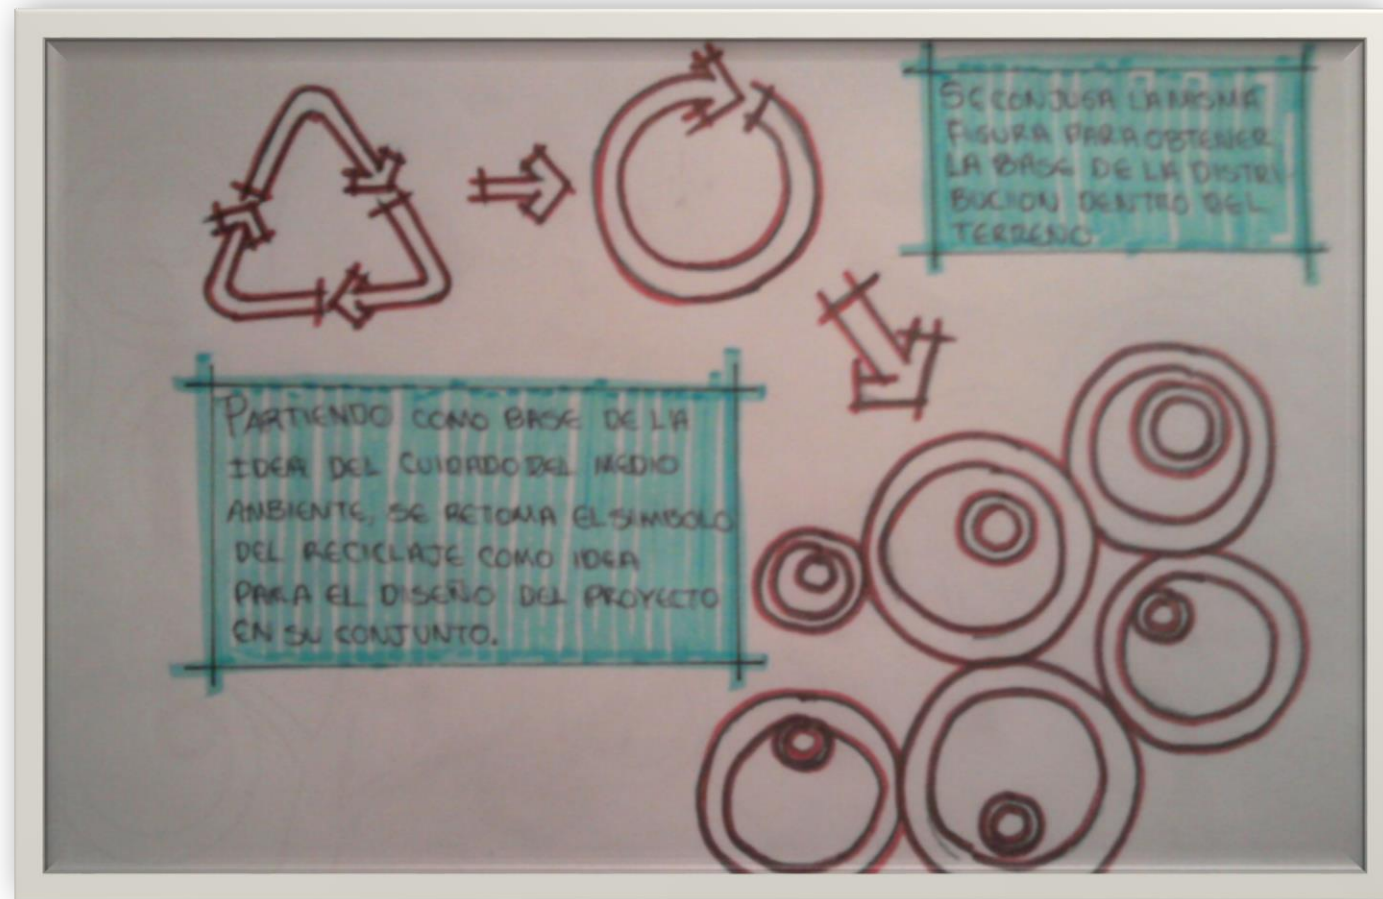 SE CONJUGA LA MISMA
FIGURA PARA OBTENER
LA BASE DE LA DISTRI-
BUCION DENTRO DEL
TERRENO.
PARTIENDO COMO BASE DE LA
IDEA DEL CUIDADO DEL MEDIO
AMBIENTE, SE RETOMA EL SIMBOLO
DEL RECICLAJE COMO IDEA
PARA EL DISEÑO DEL PROYECTO
EN SU CONJUNTO.